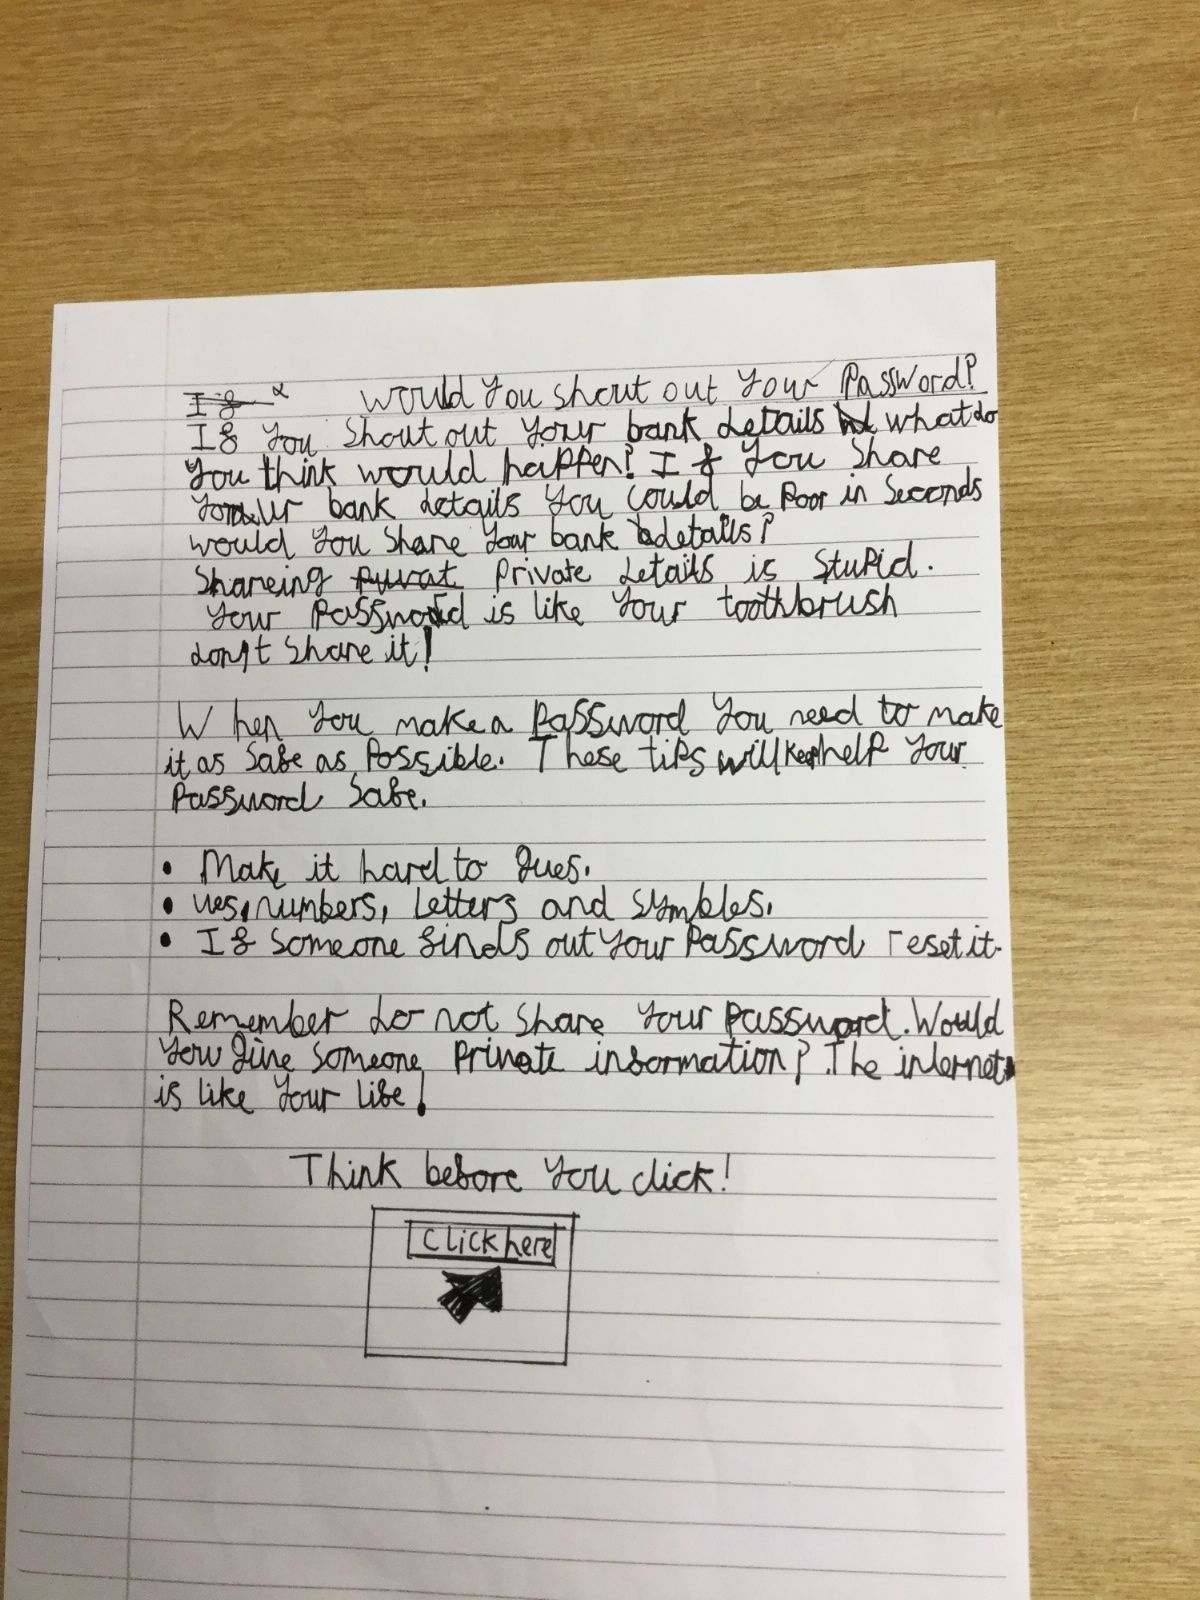 If would You shout out Your Password?
If You Shout out Your bank details what do
You think would happen? If You Share
Your bank details You could be Poor in Seconds
would You Share Your bank details?
Shareing privat Private details is Stupid.
Your Password is like Your toothbrush
don't Share it!
When You make a Password You need to make
it as Safe as Possible. These tips will help Your
Password Safe.
• Make it hard to gues.
• ues, numbers, Letters and symbles.
• If Someone finds out Your Password reset it.
Remember do not Share Your Password. Would
You give Someone Private information? The internet
is like Your Life!
Think before You click!
Click here